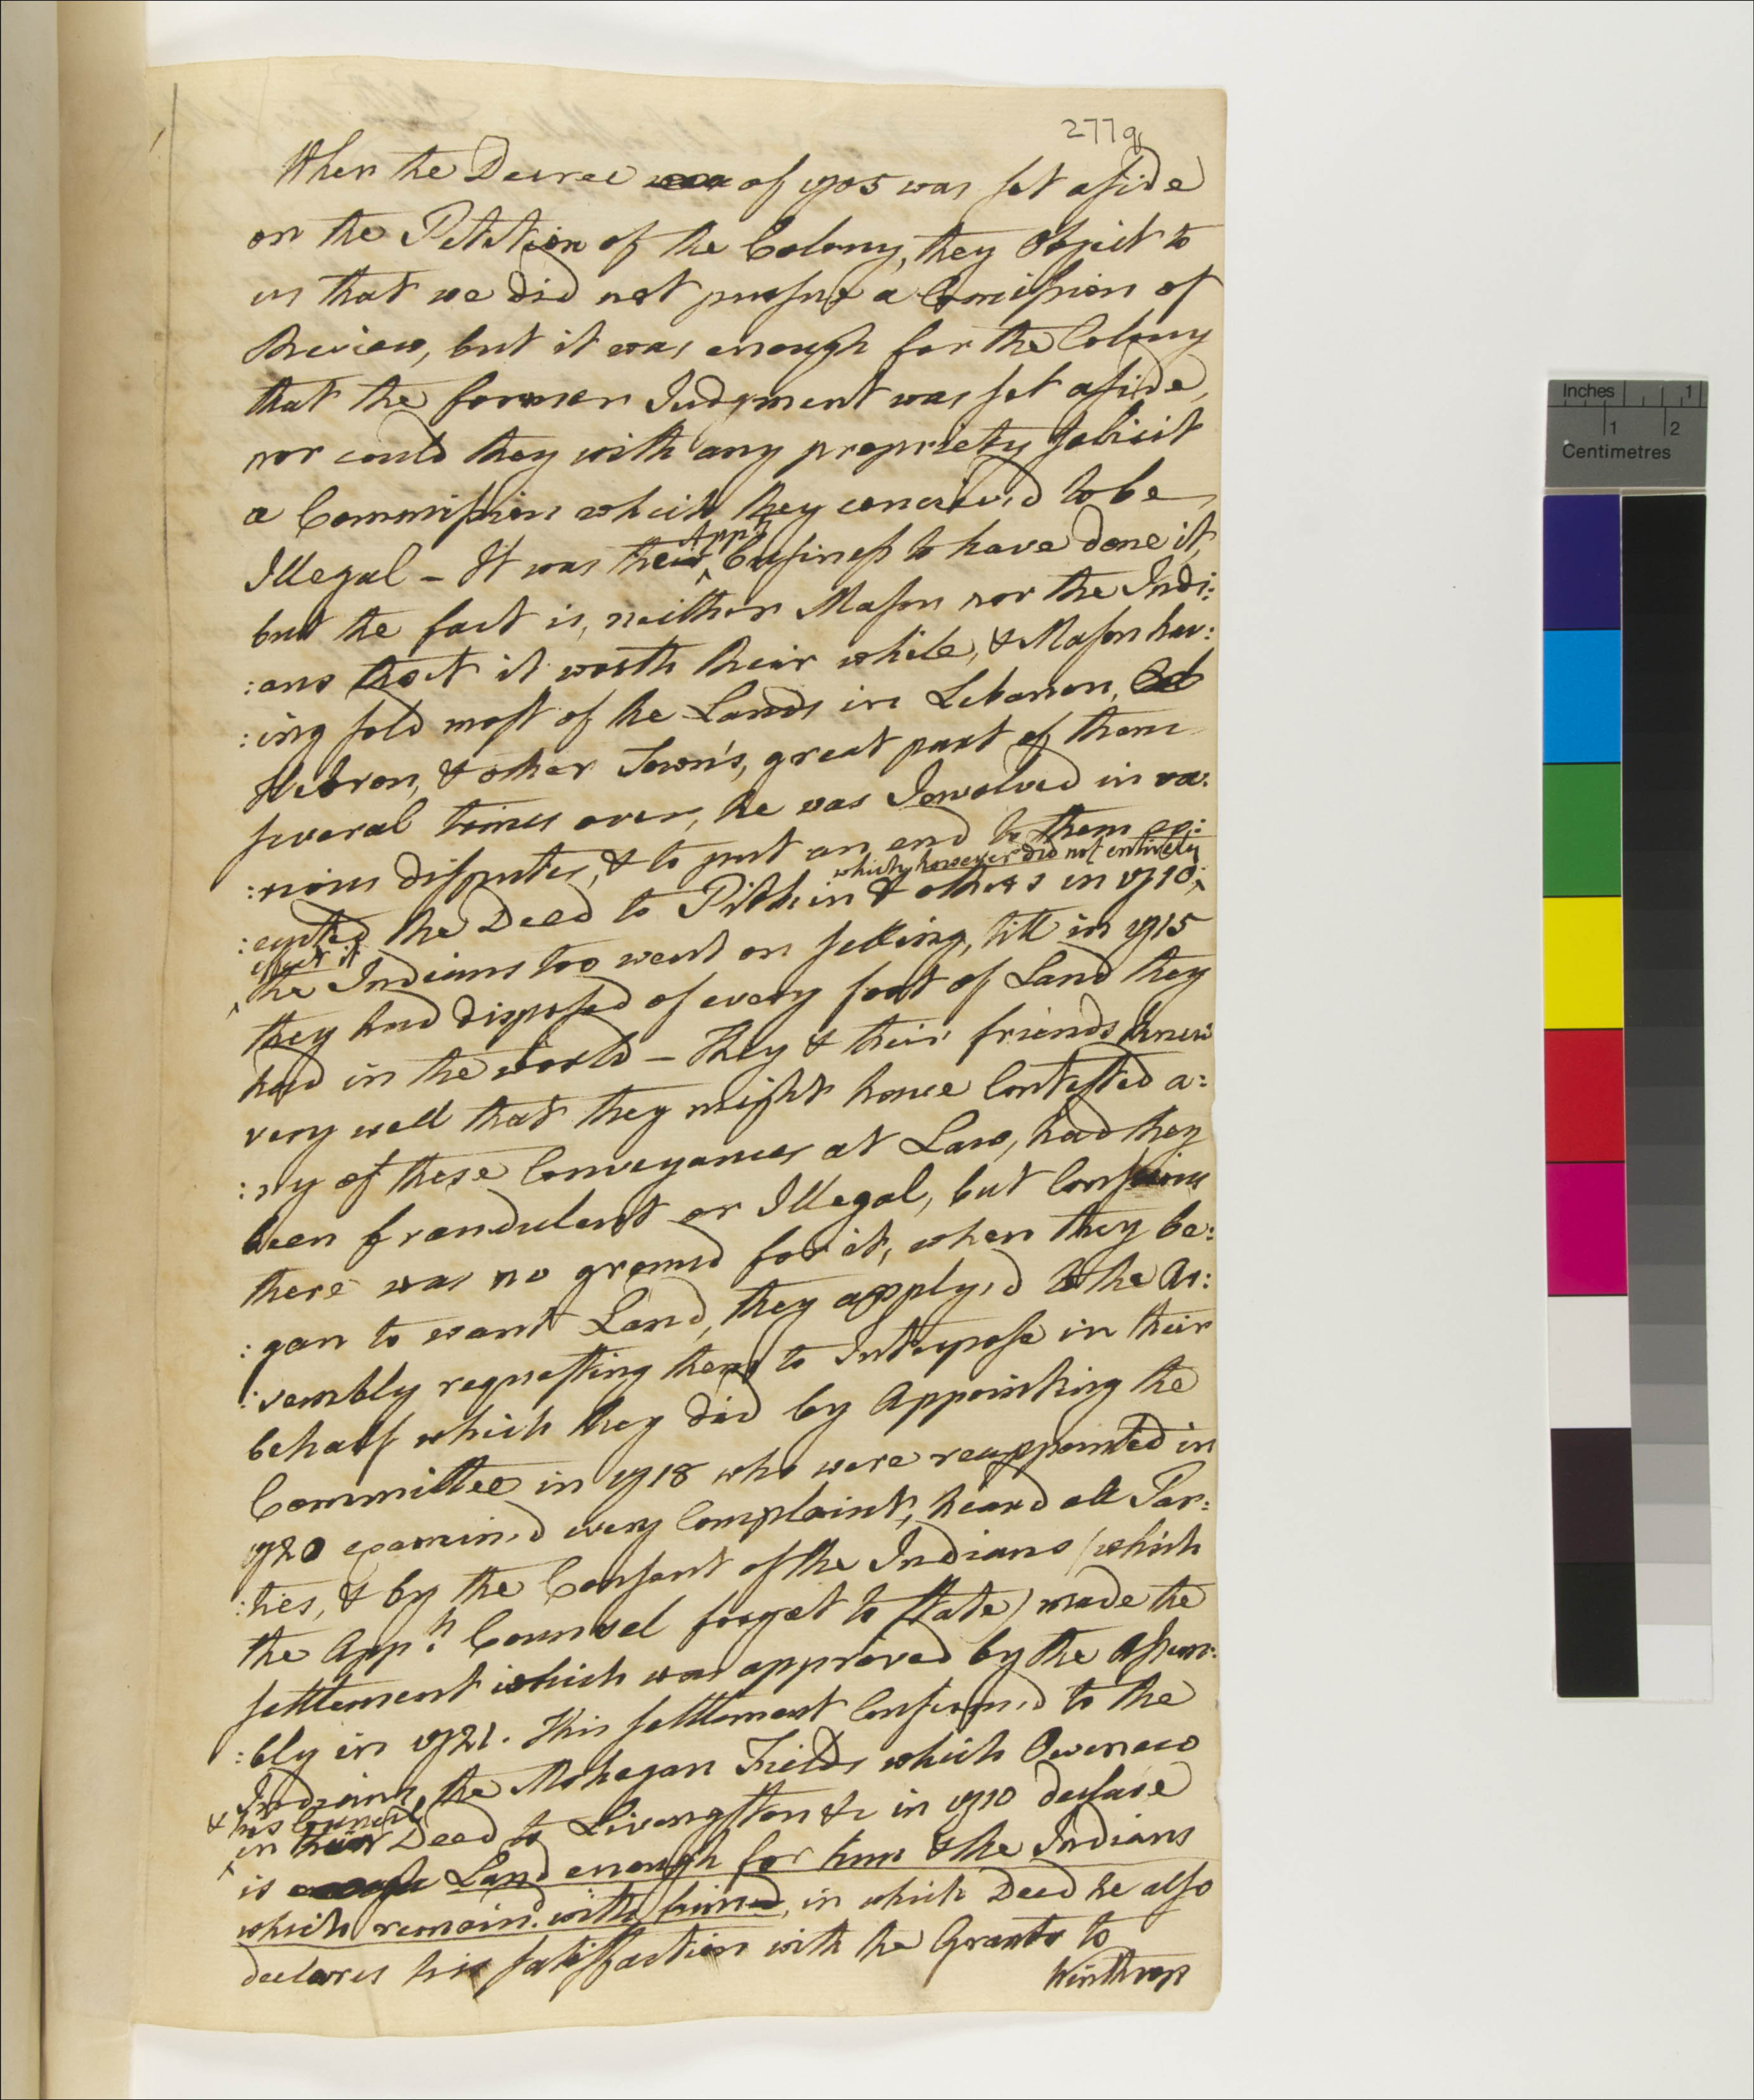 277q
When the Decree was of 1705 was set aside
on the Petition of the Colony, they Object to
us that we did not prosecute a Comission of
Review, but it was enough for the Colony
that the former Judgment was set aside,
nor could they with any propriety Solicit
a Commission which they conceiv'd to be
Illegal - It was their ^ business to have done it,
Appts
but the fact is, neither Mason nor the Indi:
:ans tho't it worth their while, & Mason hav:
:ing sold most of the Lands in Lebanon, Col
Hebron, & other Town's, great part of them
several times over, he was Involved in va:
:rious disputes, & to put an end to them ex:
which however did not entirely
:ecuted the Deed to Pitkin & others in 1710; ^
effect it
^ the Indians too went on selling, till in 1715
they had disposed of every foot of Land they
had in the world - They & their friends knew
very well that they might have Contested a:
:ny of these Conveyances at Law, had they
been fraudulent or Illegal, but Conscious
there was no ground for it, when they be:
:gan to want Land, they apply'd to the As:
:sembly requesting them to Interpose in their
behalf which they did by Appointing the
Committee in 1718 who were reappointed in
1720 examin'd every Complaint, heard all Par:
:ties, & by the Consent of the Indians (which
the Appts Counsel forget to state) made the
settlement which was approved by the Assem:
:bly in 1721. This settlement Confirm'd to the
Indians the Mohegan Fields which Oweneco
& his Council
^ in their Deed to Livingston &c in 1710 declare
is enough Land enough for him & the Indians
which remain with him, in which Deed he also
declares his satisfaction with the Grants to
Winthrop